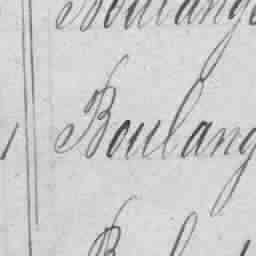 Boulange
1 Boulang